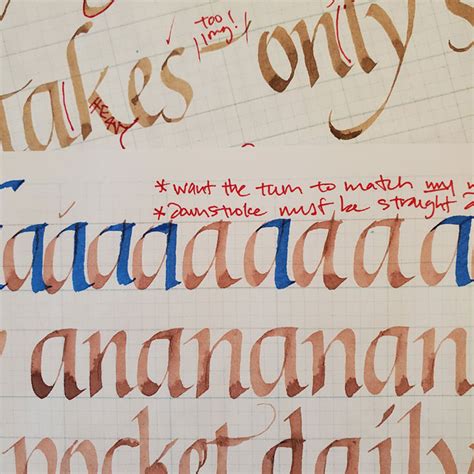 too
long!
takes only s
HEAVY
* want the turn to match my
* Downstroke must be straight
aaaaaaaaaaa
ananananan
pocket daily